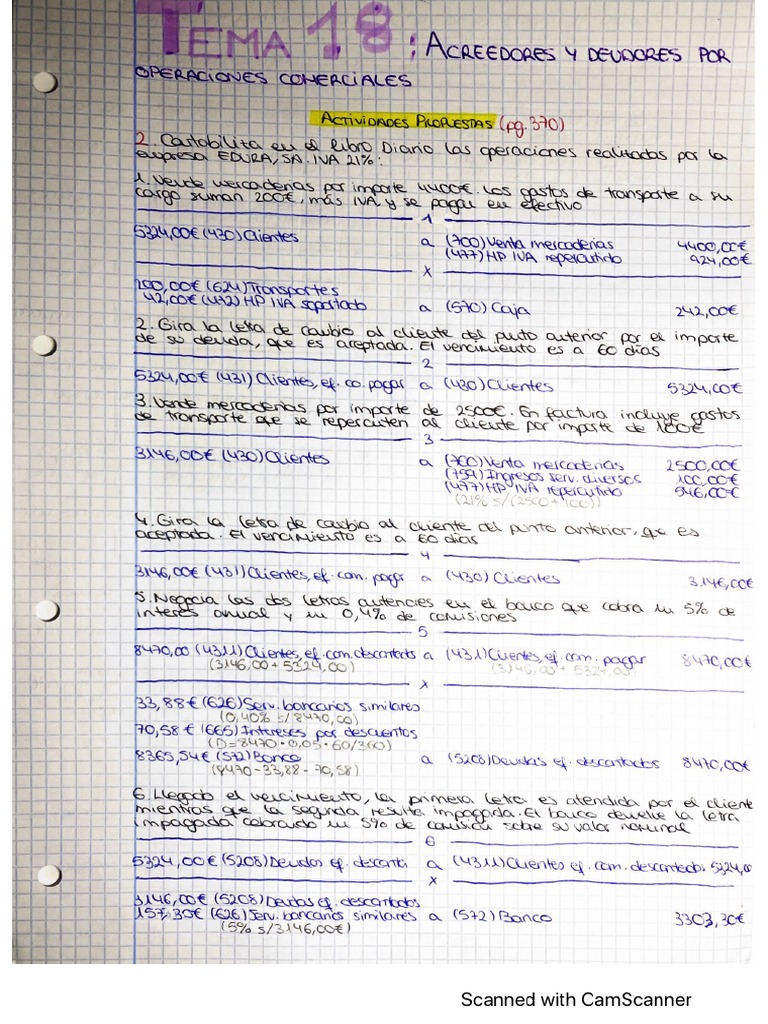 TEMA 18: ACREEDORES Y DEUDORES POR
OPERACIONES COMERCIALES
ACTIVIDADES PROPUESTAS (pg.370)
2. Contabiliza en el libro Diario las operaciones realizadas por la
empresa EDURA, SA. IVA 21%:
1. Vende mercaderías por importe 4400€. Los gastos de transporte a su
cargo suman 200€, más IVA y se pagan en efectivo
1
5324,00€ (430) Clientes a (700) Venta mercaderías 4400,00€
(477) HP IVA repercutido 924,00€
x
200,00€ (624) Transportes
42,00€ (472) HP IVA soportado a (570) Caja 242,00€
2. Gira la letra de cambio al cliente del punto anterior por el importe
de su deuda, que es aceptada. El vencimiento es a 60 días
2
5324,00€ (431) Clientes, ef. co. pagar a (430) Clientes 5324,00€
3. Vende mercaderías por importe de 2500€. En factura incluye gastos
de transporte que se repercuten al cliente por importe de 100€
3
3146,00€ (430) Clientes a (700) Venta mercaderías 2500,00€
(759) Ingresos serv. diversos 100,00€
(477) HP IVA repercutido 546,00€
(21% s/(2500+100))
4. Gira la letra de cambio al cliente del punto anterior, que es
aceptada. El vencimiento es a 60 días
4
3146,00€ (431) Clientes, ef. com. pagar a (430) Clientes 3.146,00€
5. Negocia las dos letras anteriores en el banco que cobra un 5% de
interés anual y un 0,4% de comisiones
5
8470,00 (4311) Clientes, ef. com. descontados a (431) Clientes, ef. com. pagar 8470,00€
(3146,00 + 5324,00) (3146,00 + 5324,00)
x
33,88€ (626) Serv. bancarios similares
(0,40% s/8470,00)
70,58€ (665) Intereses por descuentos
(D=8470·0,05·60/360)
8365,54€ (572) Banco a (5208) Deudas ef. descontados 8470,00€
(8470-33,88-70,58)
6. Llegado el vencimiento, la primera letra es atendida por el cliente
mientras que la segunda, resulta impagada. El banco devuelve la letra
impagada cobrando un 5% de comisión sobre su valor nominal
6
5324,00€ (5208) Deudas ef. desconta a (4311) Clientes ef. com. descontados 5324,00
x
3146,00€ (5208) Deudas ef. descontados
157,30€ (626) Serv. bancarios similares a (572) Banco 3303,30€
(5% s/3146,00€)
Scanned with CamScanner